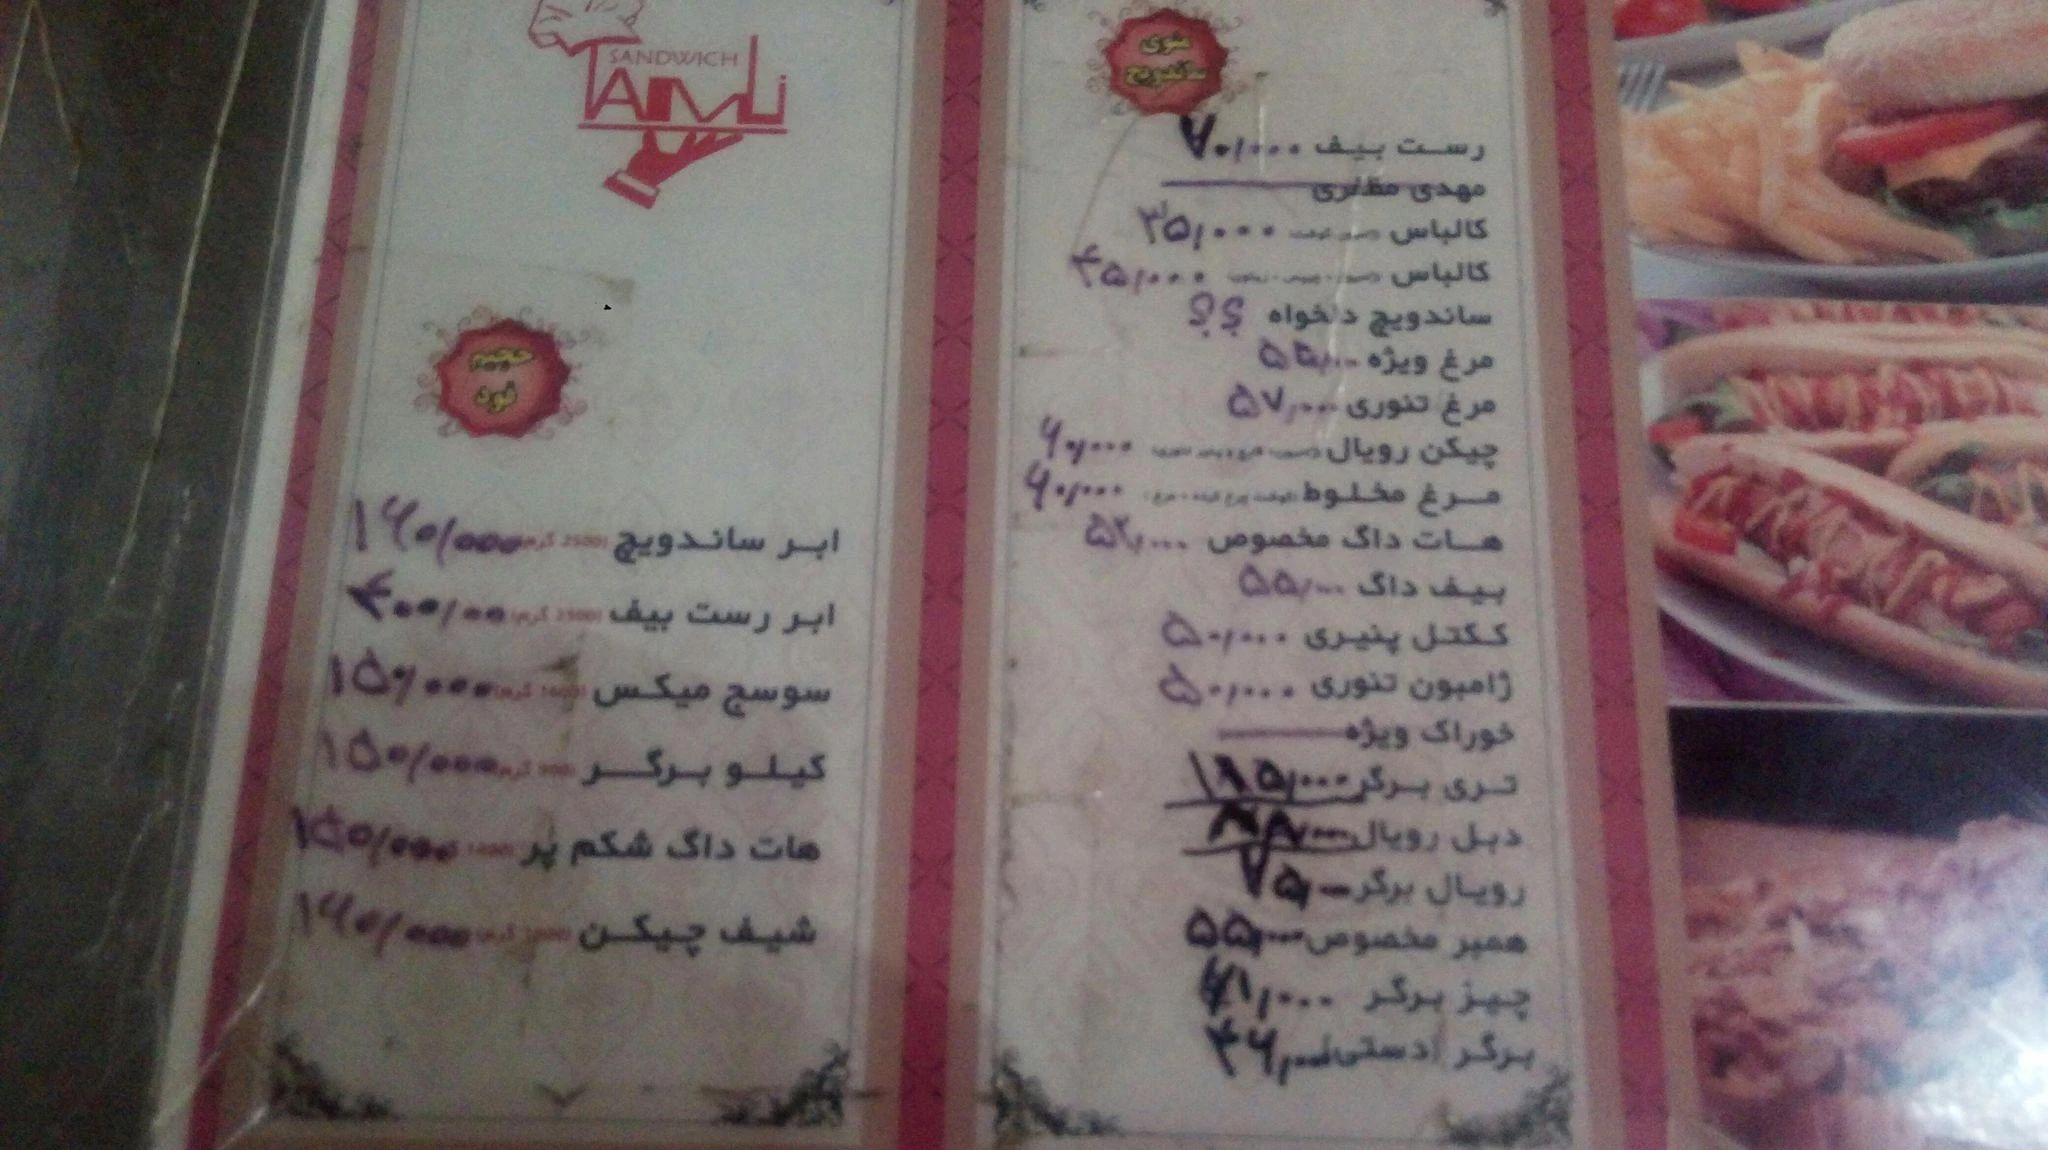 SANDWICH
TAMLI
منوی
ساندویچ
رست بیف ۷۰,۰۰۰
مهدی مظفری
کالباس ۳۵,۰۰۰
کالباس ۴۵,۰۰۰
ساندویچ دلخواه ؟؟
مرغ ویژه
مرغ تنوری ۵۷,۰۰۰
چیکن رویال ۶۰,۰۰۰
مرغ مخلوط ۶۰,۰۰۰
هات داگ مخصوص
بیف داگ ۵۵,۰۰۰
ککتل پنیری ۵۰,۰۰۰
ژامبون تنوری ۵۰,۰۰۰
خوراک ویژه
تری برگر
دبل رویال
رویال برگر ۷۵,۰۰۰
همبر مخصوص ۵۵,۰۰۰
چیز برگر ۶۱,۰۰۰
برگر دستی ۴۶,۰۰۰
حجیم
فود
ابر ساندویچ (2500 گرم) ۱۶۰/۰۰۰
ابر رست بیف
سوسیج میکس ۱۵۰/۰۰۰
کیلو برگر ۱۵۰/۰۰۰
هات داگ شکم پر ۱۵۰/۰۰۰
شیف چیکن ۱۶۰/۰۰۰